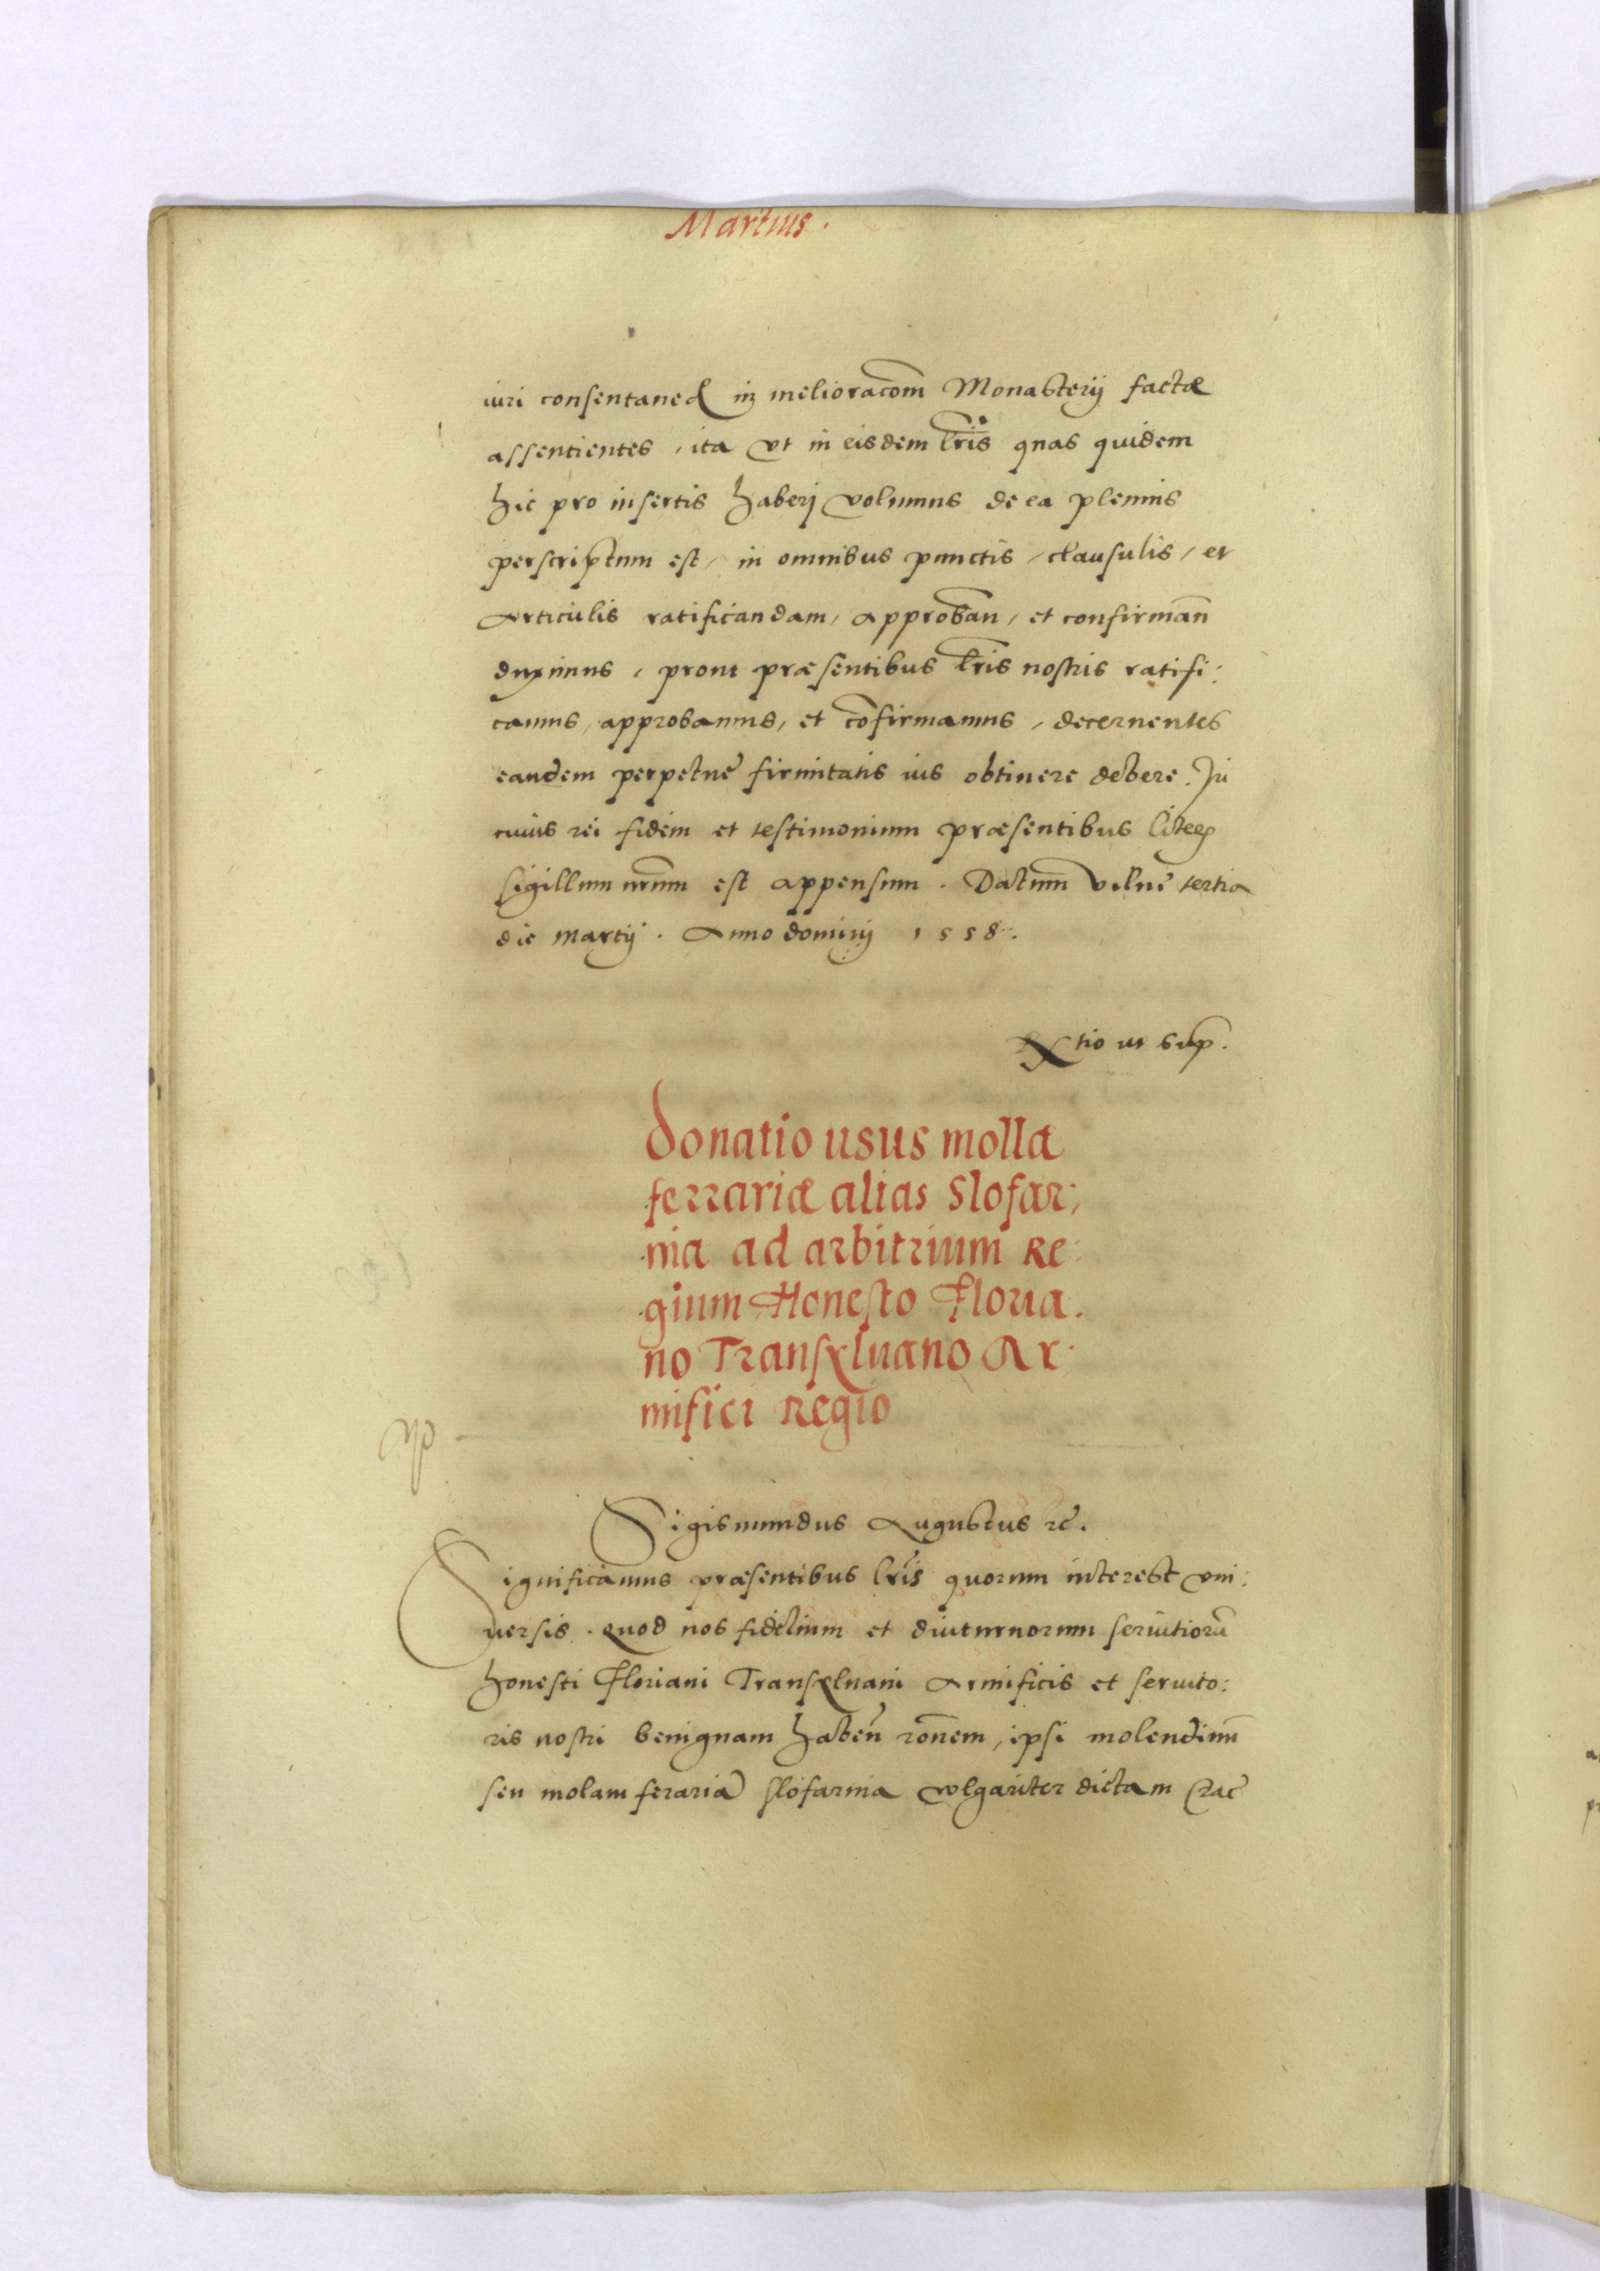 Martius.
iuri consentaneę in melioracom̄ Monasterij factæ
assentientes, ita vt in eisdem lr̄is quas quidem
hic pro insertis haberj volumus de ea plenius
perscriptum est, in omnibus punctis, clausulis, et
Articulis ratificandam, approban̄, et confirman̄
duximus, prout præsentibus lr̄is nostris ratifi:
camus, approbamus, et cōfirmamus, decernentes
eandem perpetuę firmitatis ius obtinere debere. In
cuius rei fidem et testimonium præsentibus
sigillum nr̄um est appensum. Datum̄ Vilnę tertia
die Martij. Anno dominj 1558.
ut sup.
Donatio usus molla
ferrariæ alias Slofar,
nia ad arbitrium Re:
gium Honesto Floria.
no Transylvano Ar:
mifici Regio
Sigismundus Augustus rc̄.
Significamus præsentibus lr̄is quorum interest vni:
uersis. Quod nos fidelium et diuturnorum seruitiorū
honesti Floriani Transyluani Armificis et seruito:
ris nostri benignam haben̄ rōnem, ipsi molendinū
seu molam ferariā slofarnia volgariter dictam Crac̄